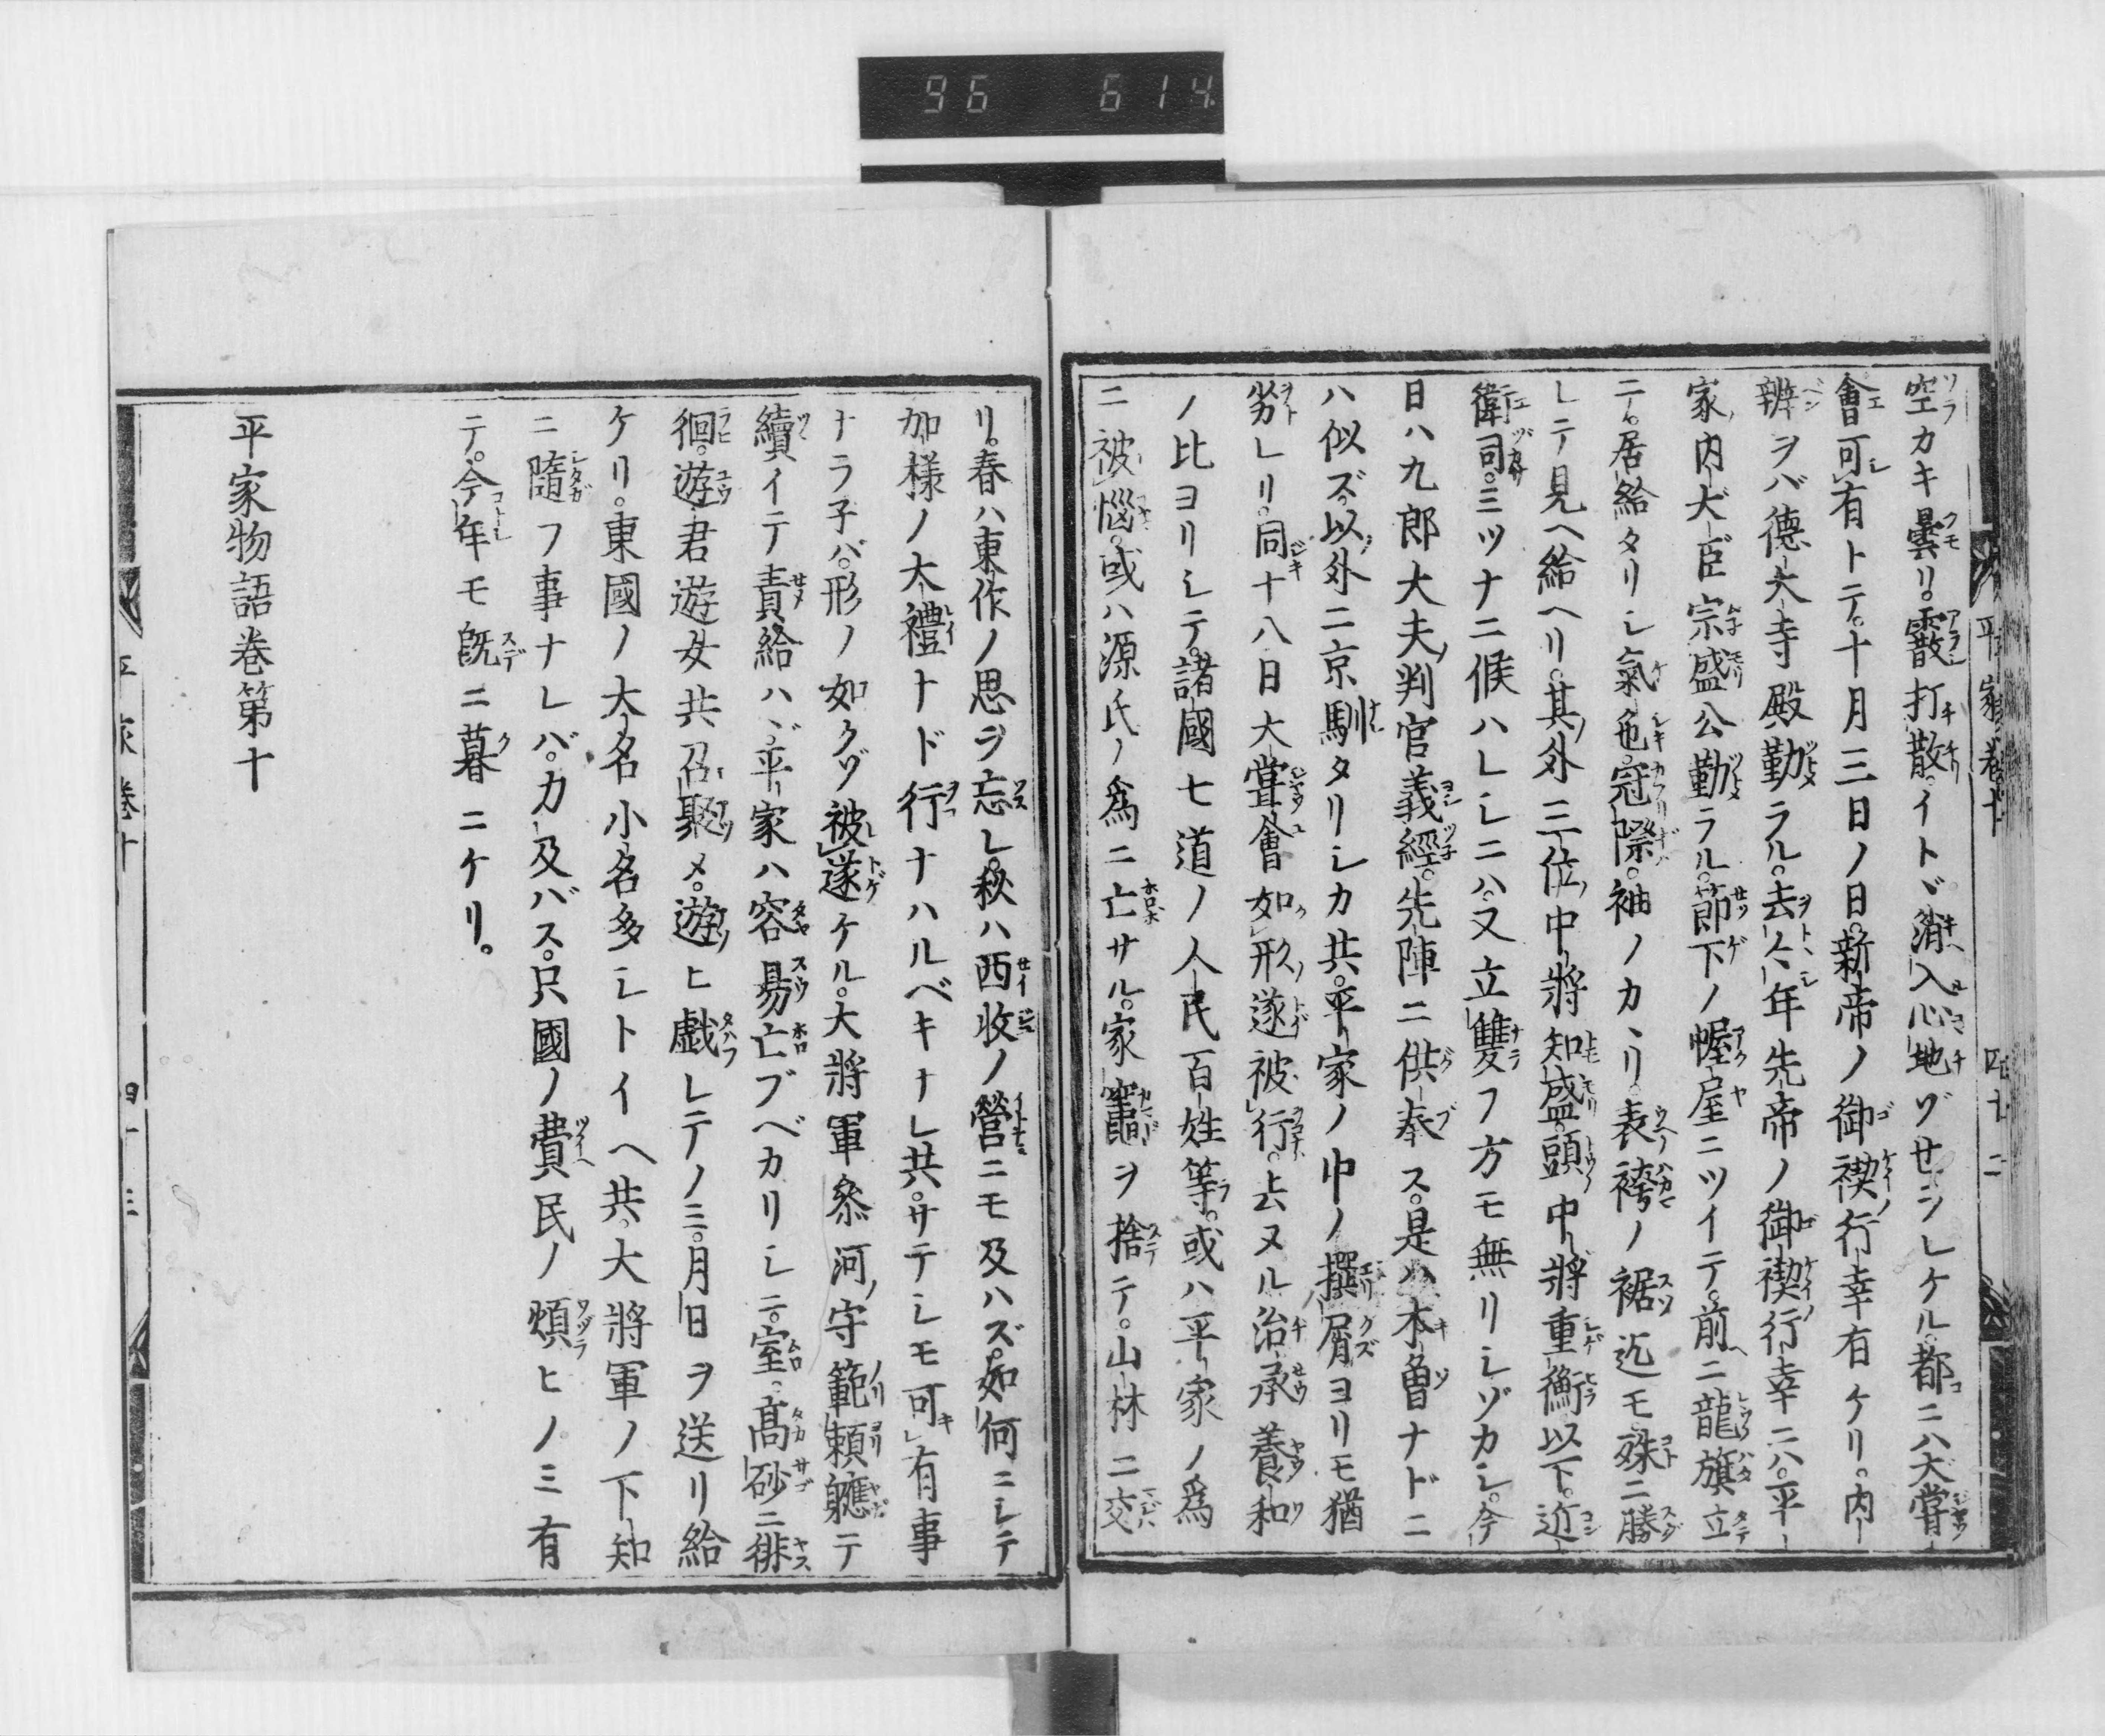 96 614
空カキ曇リ。霰打散。イトヾ消入心地ゾせシレケル。都ニハ大甞
會可有トテ。十月三日ノ日。新帝ノ御禊行幸有ケリ。内
辨ヲバ徳大寺殿勤ラル。去々年先帝ノ御禊行幸ニハ。平
家ノ内大臣宗盛公勤ラル。節下ノ幄屋ニツイテ。前ニ龍旗立
テ。居給タリシ氣色。冠際。袖ノカヽリ。表袴ノ裾迠モ殊ニ勝
レテ見ヘ給ヘリ。其外三位中將知盛。頭中將重衡以下。近
衛司。ミツナニ候ハレシニハ。又立雙フ方モ無リシゾカシ。今
日ハ九郎大夫判官義經。先陣ニ供奉ス。是ハ木曽ナドニ
ハ似ズ。以外ニ京馴タリシカ共。平家ノ中ノ撰屑ヨリモ猶
劣レリ。同十八日大甞會如形遂被行。去ヌル治承養和
ノ比ヨリシテ。諸國七道ノ人民百姓等。或ハ平家ノ爲
ニ被惱。或ハ源氏ノ爲ニ亡サル。家竈ヲ捨テ。山林ニ交
リ。春ハ東作ノ思ヲ忘レ。秋ハ西收ノ營ニモ及ハズ。如何ニシテ
加様ノ大禮ナド行ナハルベキナレ共。サテシモ可有事
ナラ子バ。形ノ如クゾ被遂ケル。大將軍叅河守範頼軈テ
續イテ責給ハヾ。平家ハ容易亡ブベカリシニ。室。髙砂ニ徘
徊。遊君遊女共召聚メ。遊ヒ戯レテノミ。月日ヲ送リ給
ケリ。東國ノ大名小名多シトイヘ共。大將軍ノ下知
ニ隨フ事ナレバ。力及バス。只國ノ費民ノ煩ヒノミ有
テ。今年モ既ニ暮ニケリ。
平家物語巻第十